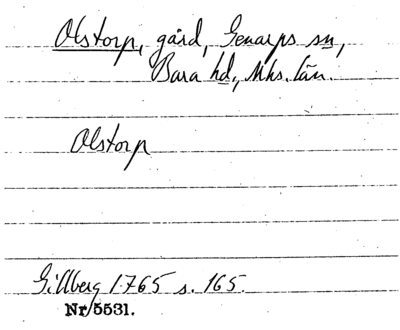 Olstorp, gård, Genarps sn,
Bara hd, Mhs. län.
Olstorp
Gillberg 1765 s. 165.
Nr 5531.